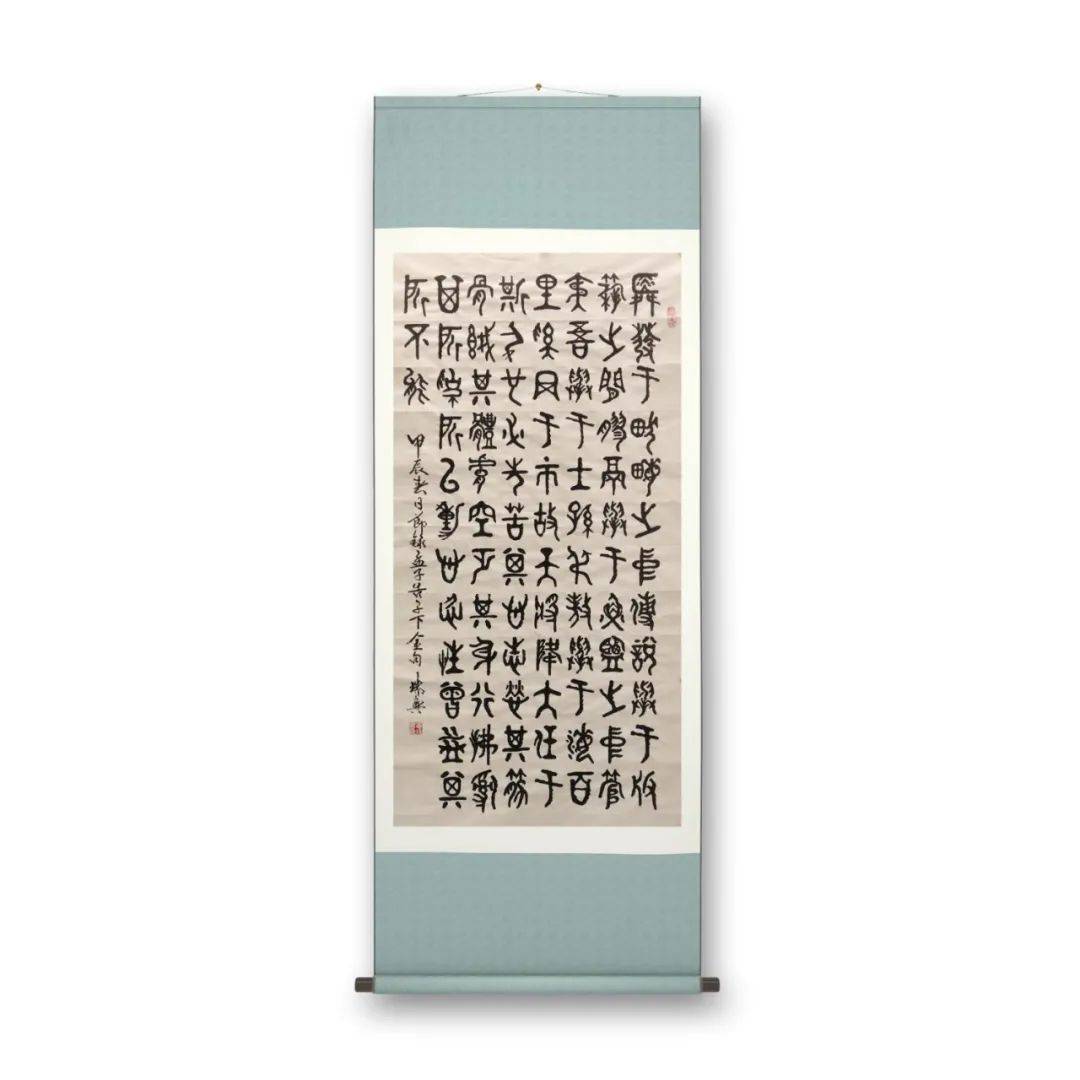 舜發于畎畝之中傅說舉于版
築之間膠鬲舉于魚鹽之中管
夷吾舉于士孫叔敖舉于海百
里奚舉于市故天將降大任于
斯人也必先苦其心志勞其筋
骨餓其體膚空乏其身行拂亂
其所為所以動心忍性曾益其
所不能
甲辰春月節錄孟子告子下金句